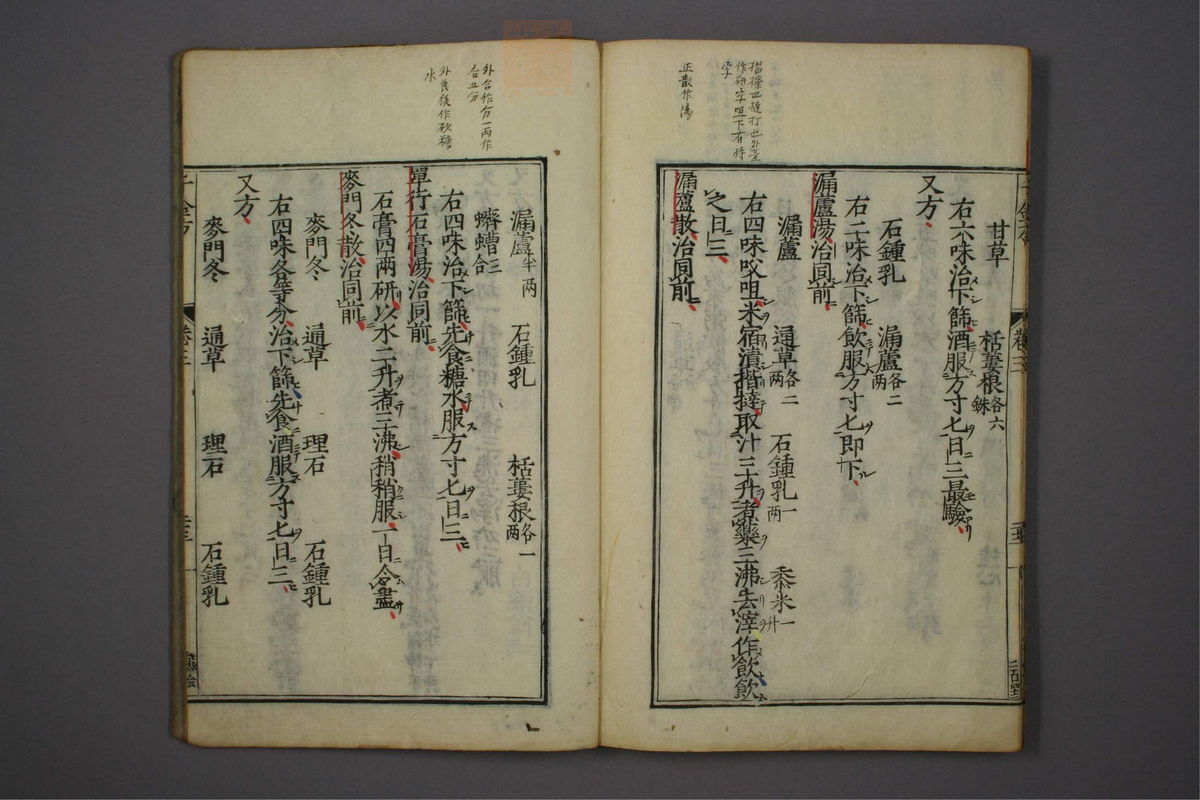 甘草　栝蔞根各六銖
右六味治下篩酒服方寸匕日三最驗
又方
石鍾乳　漏蘆各二兩
右二味治下篩飲服方寸匕即下
漏蘆湯治同前
漏蘆　通草各二兩　石鍾乳一兩　黍米一升
右四味㕮咀米宿漬揩撻取汁三升煮藥三沸去滓作飲飲
之日三
漏蘆散治同前
正散作湯
漏蘆半兩　石鍾乳　栝蔞根各一兩
蠐螬三合
右四味治下篩先食糖水服方寸匕日三
單行石膏湯治同前
石膏四兩研以水二升煮三沸稍稍服一日令盡
麥門冬散治同前
麥門冬　通草　理石　石鍾乳
右四味各等分治下篩先食酒服方寸匕日三
又方
麥門冬　通草　理石　石鍾乳
外合作分一兩作
各五分
外食後作砂糖
水